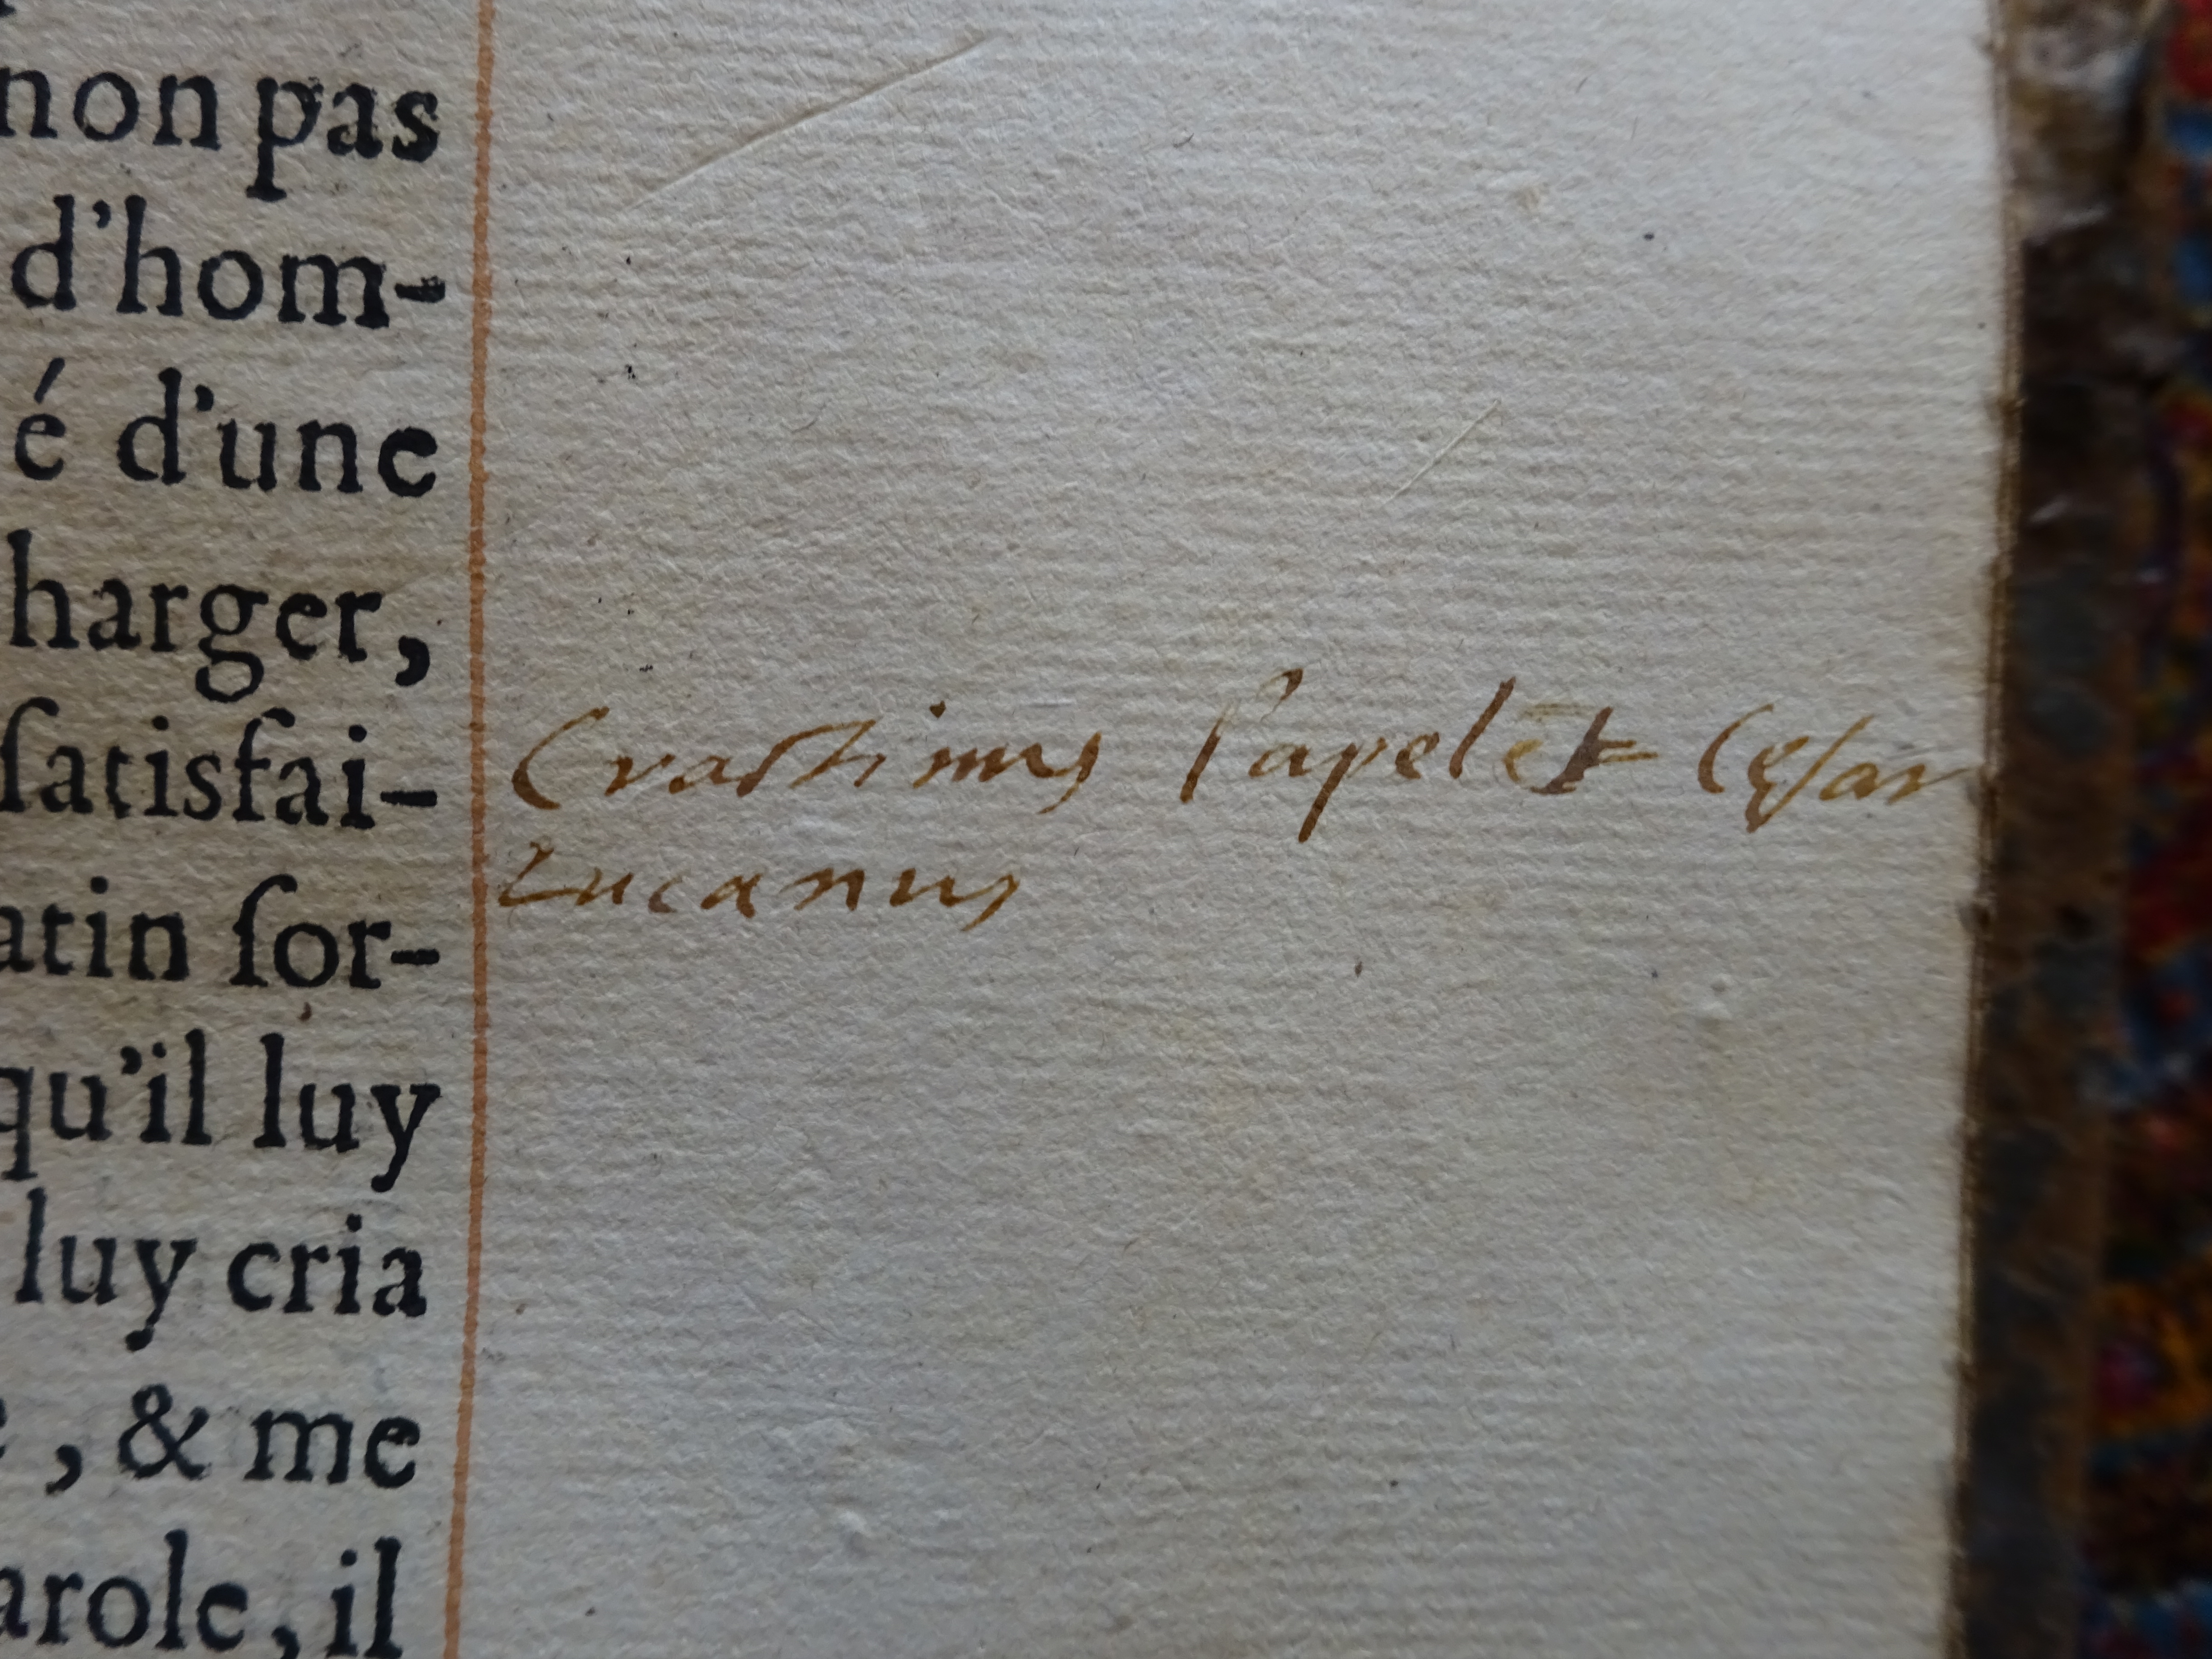 non pas
d'hom-
é d'une
harger,
ſatisfai-
atin ſor-
qu'il luy
luy cria
, & me
arole, il
Craſtinus l'apelēt Cęſar
Lucanus